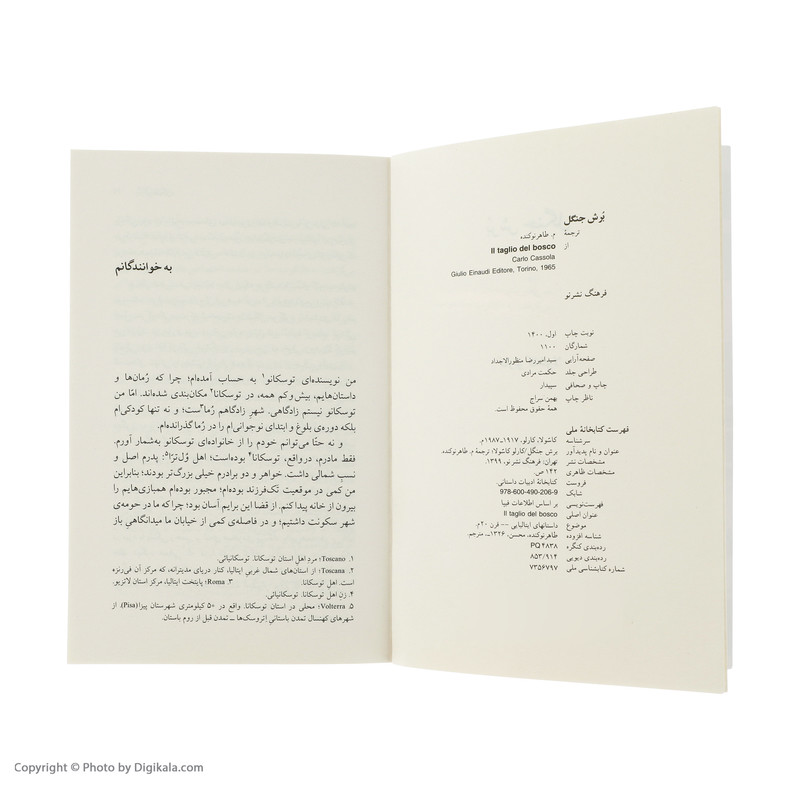 بُرش جنگل
ترجمهٔ م. طاهرنوکنده
از Il taglio del bosco
Carlo Cassola
Giulio Einaudi Editore, Torino, 1965
فرهنگ نشرنو
نوبت چاپ اول، ۱۴۰۰
شمارگان ۱۱۰۰
صفحه‌آرایی سیدامیررضا منظورالاجداد
طراحی جلد حکمت مرادی
چاپ و صحافی سپیدار
ناظر چاپ بهمن سراج
همهٔ حقوق محفوظ است.
فهرست کتابخانهٔ ملی
سرشناسه کاشولا، کارلو، ۱۹۱۷ـ۱۹۸۷م.
عنوان و نام پدیدآور برش جنگل/کارلو کاشولا؛ ترجمهٔ م. طاهرنوکنده.
مشخصات نشر تهران: فرهنگ نشرنو، ۱۳۹۹.
مشخصات ظاهری ۱۴۲ ص.
فروست کتابخانهٔ ادبیات داستانی.
شابک 978-600-490-206-9
فهرست‌نویسی بر اساس اطلاعات فیپا
عنوان اصلی Il taglio del bosco
موضوع داستانهای ایتالیایی -- قرن ۲۰م.
شناسه افزوده طاهرنوکنده، محسن، ۱۳۲۶ـ، مترجم.
رده‌بندی کنگره PQ۴۸۳۸
رده‌بندی دیویی ۸۵۳/۹۱۴
شماره کتابشناسی ملی ۷۳۵۶۷۹۷
به خوانندگانم
من نویسنده‌ای توسکانو۱ به حساب آمده‌ام؛ چرا که رُمان‌ها و
داستان‌هایم، بیش‌وکم همه، در توسکانا۲ مکان‌بندی شده‌اند. امّا من
توسکانو نیستم زادگاهی. شهرِ زادگاهم رُما۳ست؛ و نه تنها کودکی‌ام
بلکه دوره‌ی بلوغ و ابتدای نوجوانی‌ام را در رُما گذرانده‌ام.
و نه حتّا می‌توانم خودم را از خانواده‌ای توسکانو به‌شمار آورم.
فقط مادرم، درواقع، توسکانا۴ بوده‌است؛ اهل وُل‌تِرّا۵؛ پدرم اصل و
نسبِ شمالی داشت. خواهر و دو برادرم خیلی بزرگ‌تر بودند؛ بنابراین
من کمی در موقعیت تک‌فرزند بوده‌ام؛ مجبور بوده‌ام همبازی‌هایم را
بیرون از خانه پیدا کنم. از قضا این برایم آسان بود؛ چرا که ما در حومه‌ی
شهر سکونت داشتیم؛ و در فاصله‌ی کمی از خیابان ما میدانگاهیِ باز
۱. Toscano؛ مرد اهلِ استان توسکانا. توسکانیائی.
۲. Toscana؛ از استان‌های شمال غربیِ ایتالیا، کنار دریای مدیترانه، که مرکز آن فی‌رنزه
است. اهلِ توسکانا. ۳. Roma؛ پایتخت ایتالیا، مرکز استان لاتزیو.
۴. زن اهل توسکانا. توسکانیائی.
۵. Volterra؛ محلی در استان توسکانا. واقع در ۵۰ کیلومتری شهرستان پیزا (Pisa). از
شهرهای کهنسال تمدن باستانیِ اِتروسک‌ها ــ تمدن قبل از روم باستان.
Copyright © Photo by Digikala.com